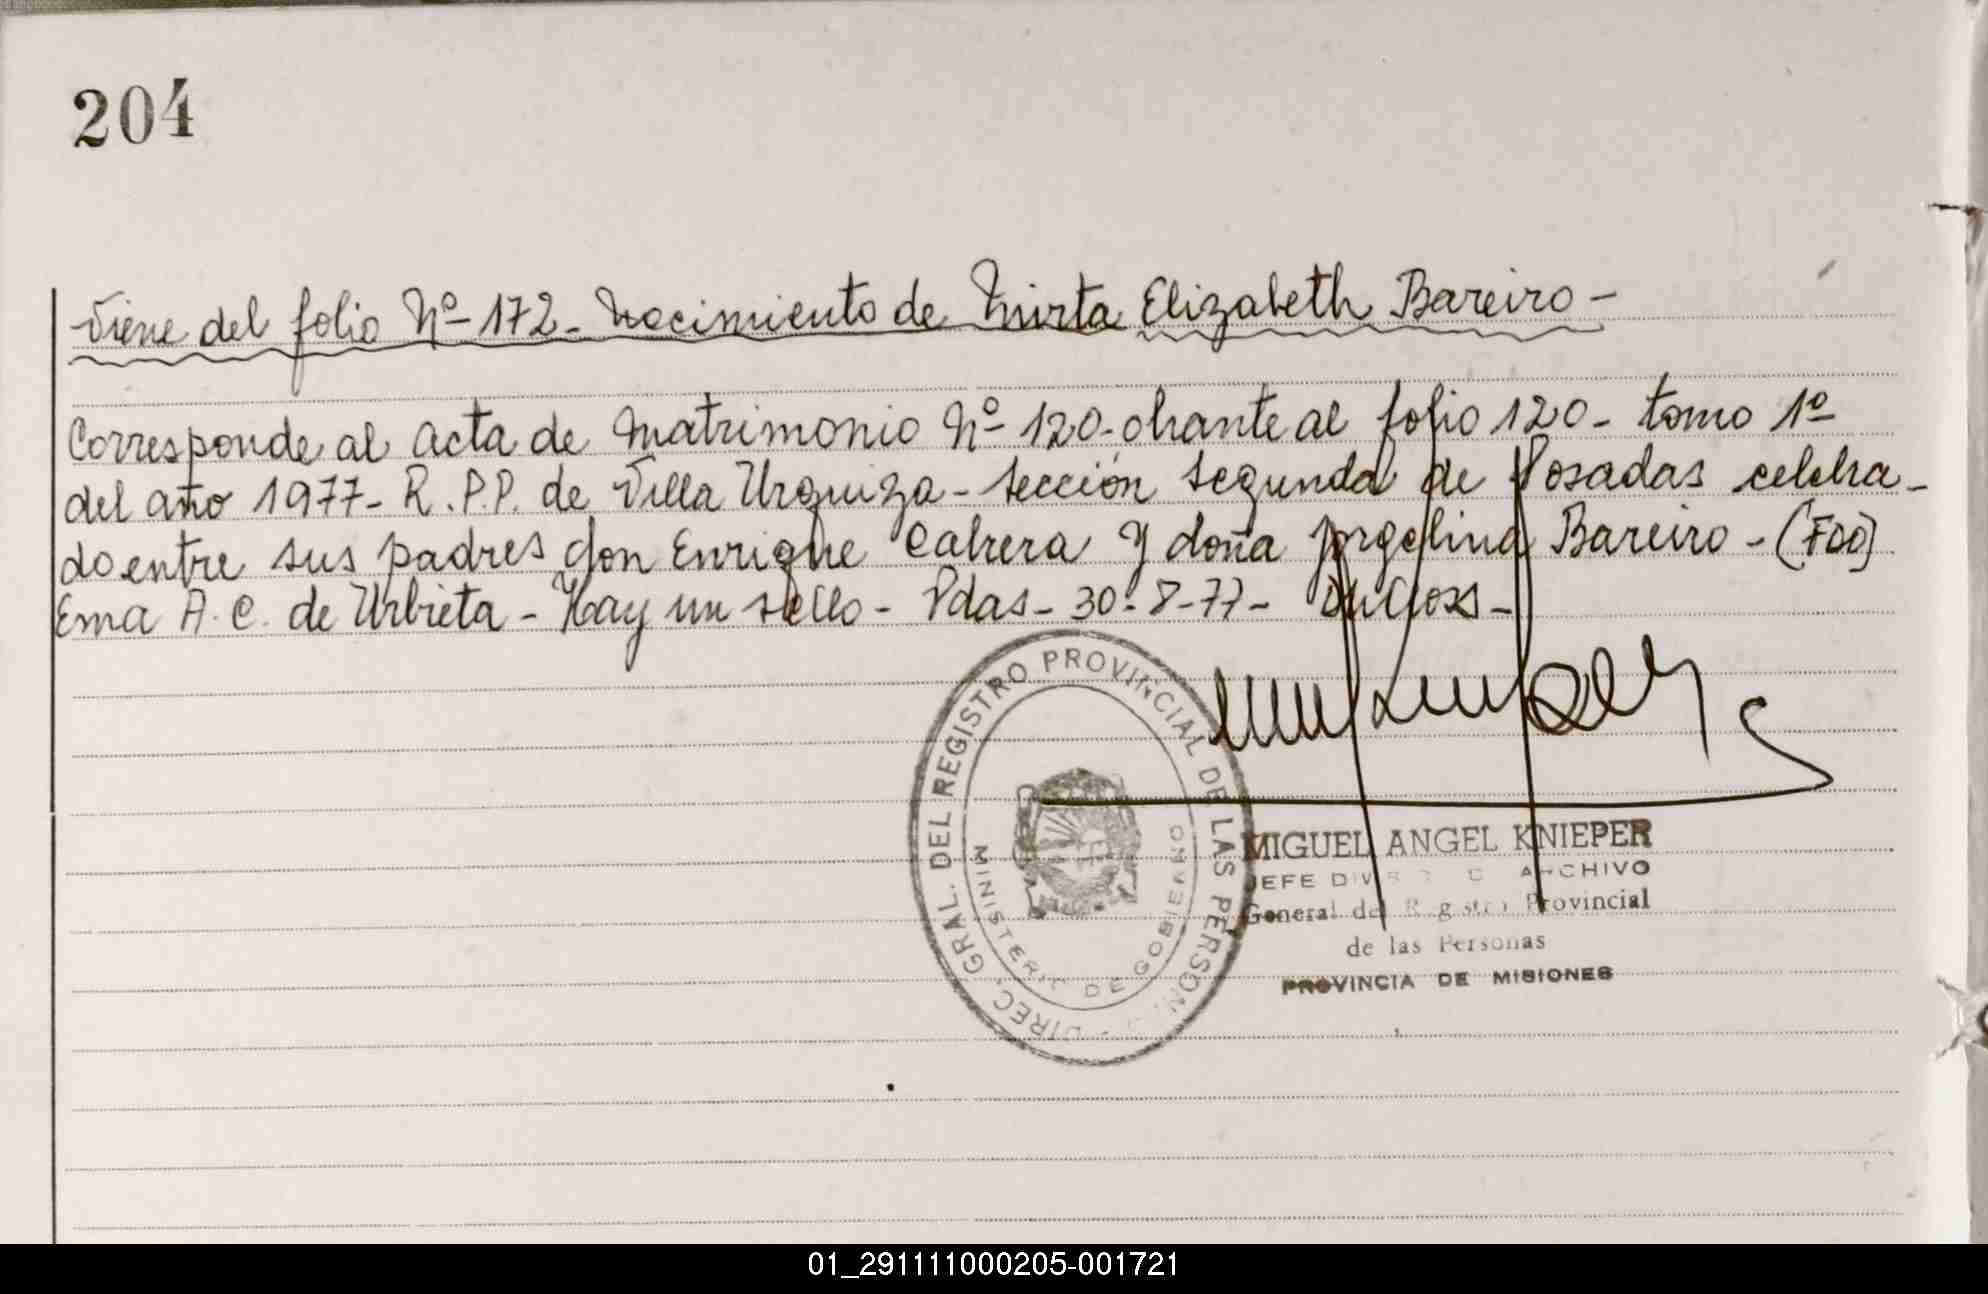 204
Viene del folio Nº 172 - Nacimiento de Mirta Elizabeth Bareiro -
Corresponde al acta de Matrimonio Nº 120 - obrante al folio 120 - tomo 1º
del año 1977 - R.P.P. de Villa Urquiza - sección segunda de Posadas celebra-
do entre sus padres don Enrique Cabrera y doña Jorgelina Bareiro - (Fdo)
Ema A. C. de Urbieta - Hay un sello - Pdas - 30 - 8 - 77 -
DIREC. GRAL. DEL REGISTRO PROVINCIAL DE LAS PERSONAS
MINISTERIO DE GOBIERNO
MIGUEL ANGEL KNIEPER
JEFE ARCHIVO
General del Registro Provincial
de las Personas
PROVINCIA DE MISIONES
01_291111000205-001721